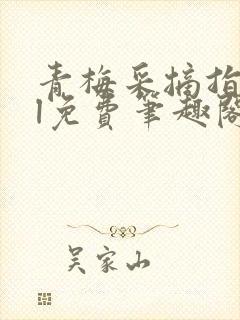 青梅采摘指
1免费笔趣阁
吴家山